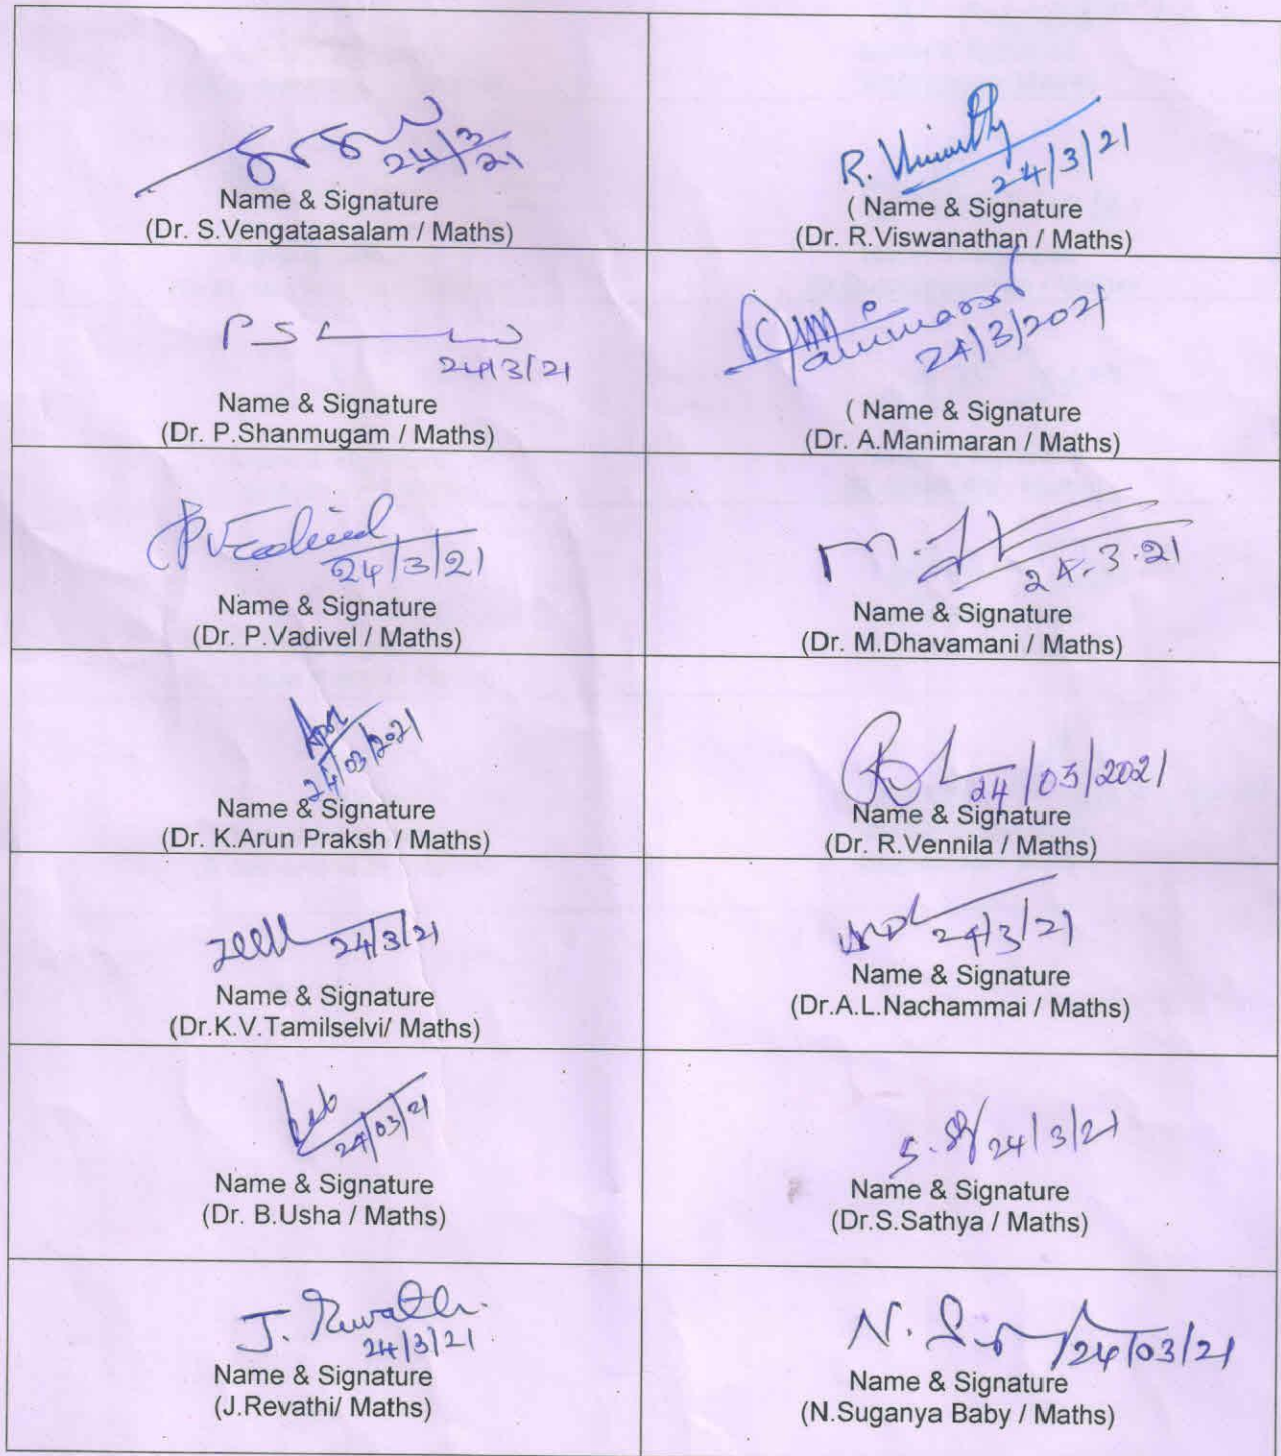 24/3/21
R.
24/3/21
Name & Signature
(Dr. S.Vengataasalam / Maths)
( Name & Signature
(Dr. R.Viswanathan / Maths)
P S
24/3/21
24/3/2021
Name & Signature
(Dr. P.Shanmugam / Maths)
( Name & Signature
(Dr. A.Manimaran / Maths)
24/3/21
M.
24.3.21
Name & Signature
(Dr. P.Vadivel / Maths)
Name & Signature
(Dr. M.Dhavamani / Maths)
24/03/2021
24/03/2021
Name & Signature
(Dr. K.Arun Praksh / Maths)
Name & Signature
(Dr. R.Vennila / Maths)
24/3/21
24/3/21
Name & Signature
(Dr.K.V.Tamilselvi/ Maths)
Name & Signature
(Dr.A.L.Nachammai / Maths)
24/03/21
S. 24/3/21
Name & Signature
(Dr. B.Usha / Maths)
Name & Signature
(Dr.S.Sathya / Maths)
J. Revathi.
24/3/21
N. 24/03/21
Name & Signature
(J.Revathi/ Maths)
Name & Signature
(N.Suganya Baby / Maths)